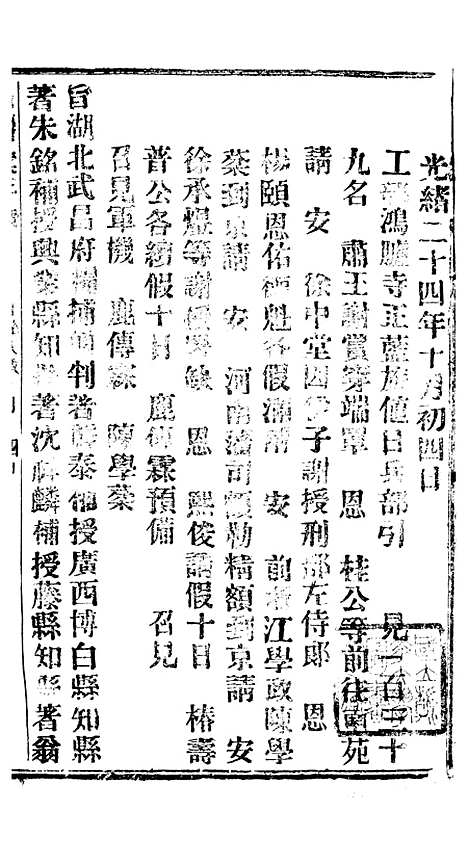 光緒二十四年十月初四日
工部鴻臚寺正藍旗值日兵部引　見一百三十
九名　肅王謝賞穿端罩　恩　桂公等前往南苑
請　安　徐中堂因伊子謝授刑部左侍郎　恩
楊頤恩佑德魁各假滿請　安　前浙江學政陳學
棻到京請　安　河南藩司額勒精額到京請　安
徐承煜等謝授 缺　恩　熙俊請假十日　椿壽
普公各續假十日　鹿傳霖預備　召見
召見軍機　鹿傳霖　陳學棻
旨湖北武昌府糧捕通判著 泰補授廣西博白縣知縣
著朱銘補授興業縣知縣著沈 麟補授藤縣知縣著翁